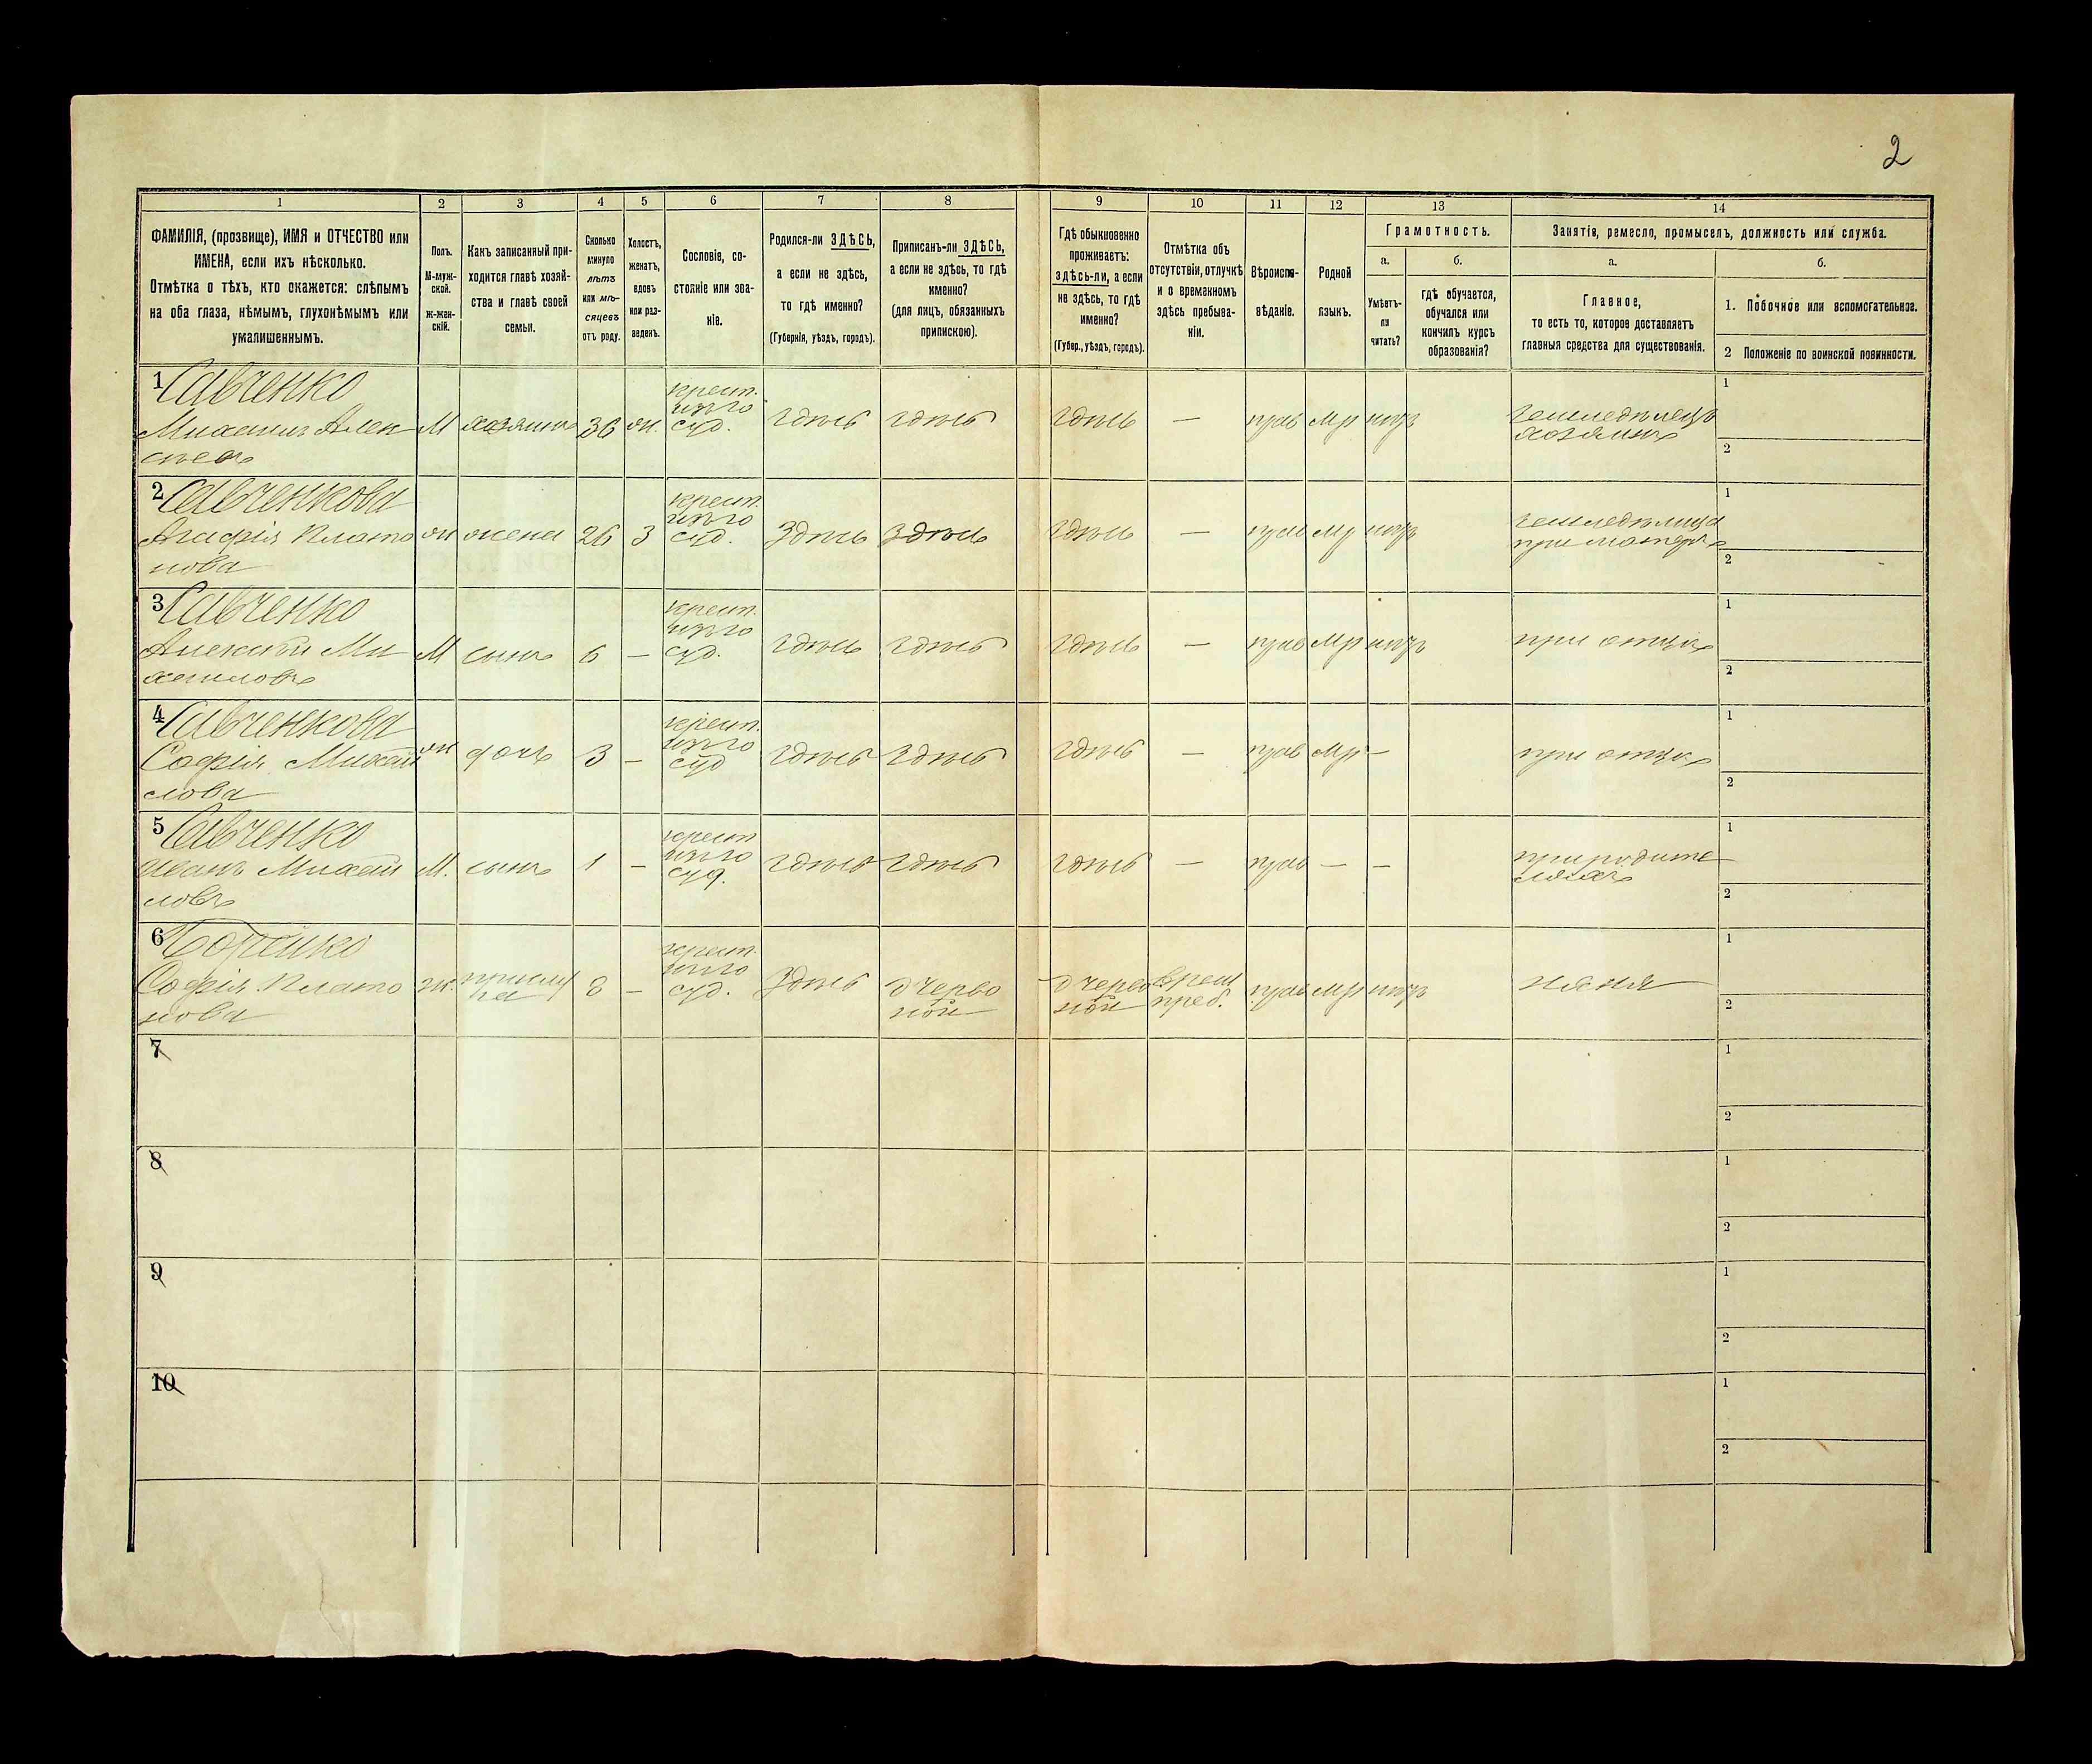 2
1 2 3 4 5 6 7 8 9 10 11 12 13 14
ФАМИЛІЯ, (прозвище), ИМЯ и ОТЧЕСТВО или
ИМЕНА, если ихъ нѣсколько.
Отмѣтка о тѣхъ, кто окажется: слѣпымъ
на оба глаза, нѣмымъ, глухонѣмымъ или
умалишеннымъ.
Полъ.
М-муж-
ской.
ж-жен-
скій.
Какъ записанный при-
ходится главѣ хозяй-
ства и главѣ своей
семьи.
Сколько
минуло
лѣтъ
или мѣ-
сяцевъ
отъ роду.
Холостъ,
женатъ,
вдовъ
или раз-
веденъ.
Сословіе, со-
стояніе или зва-
ніе.
Родился-ли ЗДѢСЬ,
а если не здѣсь,
то гдѣ именно?
(Губернія, уѣздъ, городъ).
Приписанъ-ли ЗДѢСЬ,
а если не здѣсь, то гдѣ
именно?
(для лицъ, обязанныхъ
припискою).
Гдѣ обыкновенно
проживаетъ:
здѣсь-ли, а если
не здѣсь, то гдѣ
именно?
(Губер., уѣздъ, городъ).
Отмѣтка объ
отсутствіи, отлучкѣ
и о временномъ
здѣсь пребыва-
ніи.
Вѣроиспо-
вѣданіе.
Родной
языкъ.
Грамотность.
а.
Умѣетъ-
ли
читать?
б.
гдѣ обучается,
обучался или
кончилъ курсъ
образованія?
Занятіе, ремесло, промыселъ, должность или служба.
а.
Главное,
то есть то, которое доставляетъ
главныя средства для существованія.
б.
1. Побочное или вспомогательное.
2 Положеніе по воинской повинности.
1 Савченко
Михаилъ Алек
сѣевъ
М
хозяинъ
36
ж.
крест.
изъ го
суд.
здѣсь
здѣсь
здѣсь
—
прав
мр
нѣтъ
земледѣлецъ
хозяинъ
1
2
2 Савченкова
Агафія Плато
нова
ж
жена
26
З
крест.
изъ го
суд.
Здѣсь
Здѣсь
здѣсь
—
прав
мр
нѣтъ
1
2
3 Савченко
Алексѣй Ми
хаиловъ
М
сынъ
6
—
крест.
изъ го
суд.
здѣсь
здѣсь
здѣсь
—
прав
мр
нѣтъ
при отцѣ
1
2
4 Савченкова
Софія Михаи
лова
ж
дочь
3
—
крест.
изъ го
суд
здѣсь
Здѣсь
здѣсь
—
прав
мр
—
при отцѣ
1
2
5 Савченко
Иванъ Михаи
ловъ
М.
сынъ
1
—
крест
изъ го
суд.
здѣсь
здѣсь
здѣсь
—
прав
—
—
при родите
ляхъ
1
2
6
Софія Плато
нова
ж.
прислу
га
8
—
крест.
изъ го
суд.
Здѣсь
д Черво
ной
д Черво
ной
врем
преб.
прав
мр
нѣтъ
няня
1
2
7
1
2
8
1
2
9
1
2
10
1
2